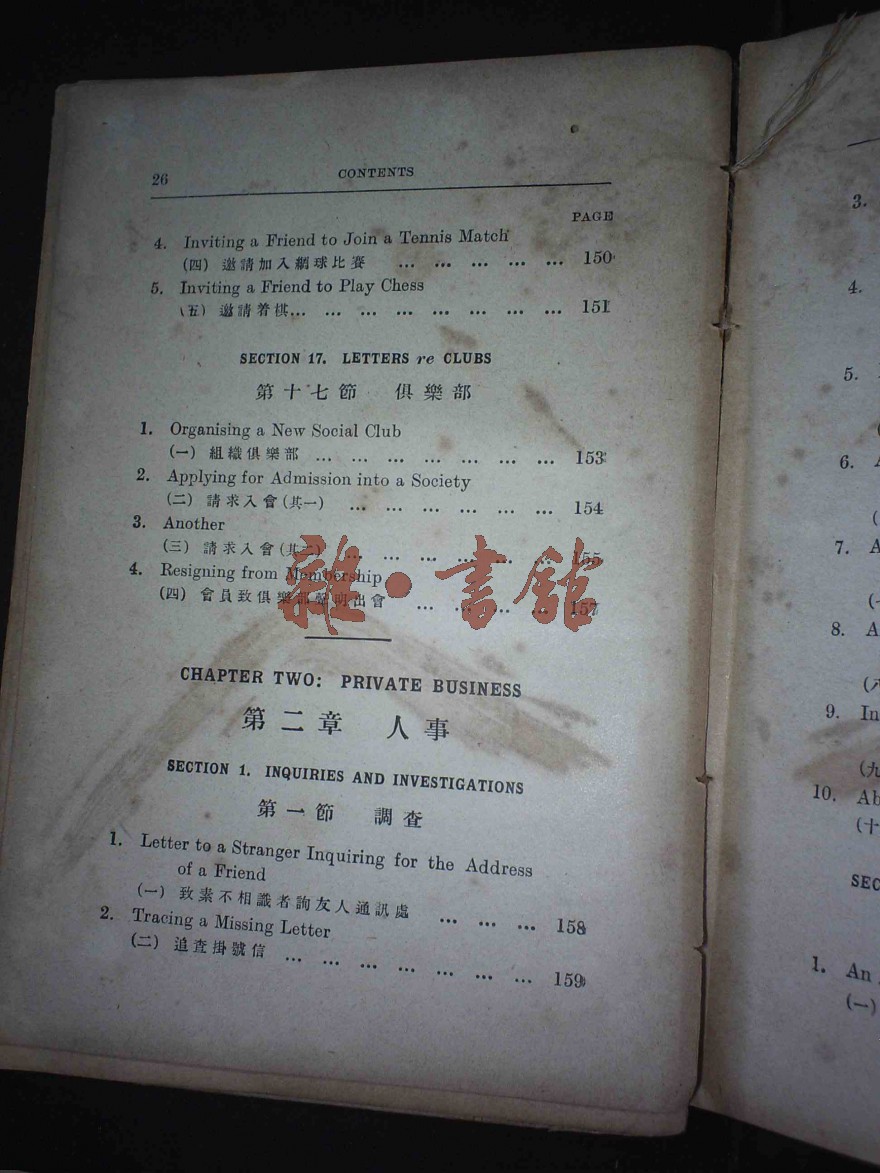 26 CONTENTS
PAGE
4. Inviting a Friend to Join a Tennis Match
(四) 邀請加入網球比賽 ... ... ... ... ... 150
5. Inviting a Friend to Play Chess
(五) 邀請着棋... ... ... ... ... ... ... ... 151
SECTION 17. LETTERS re CLUBS
第十七節 俱樂部
1. Organising a New Social Club
(一) 組織俱樂部 ... ... ... ... ... ... ... 153
2. Applying for Admission into a Society
(二) 請求入會(其一) ... ... ... ... ... ... 154
3. Another
(三) 請求入會(其二) ... ... ... ... ... ... 155
4. Resigning from Membership
(四) 會員致俱樂部聲明出會 ... ... ... ... 157
雜·書館
CHAPTER TWO: PRIVATE BUSINESS
第二章 人事
SECTION 1. INQUIRIES AND INVESTIGATIONS
第一節 調查
1. Letter to a Stranger Inquiring for the Address
of a Friend
(一) 致素不相識者詢友人通訊處 ... ... ... 158
2. Tracing a Missing Letter
(二) 追查掛號信 ... ... ... ... ... ... ... 159
3.
4.
5.
(
6. A
(
7. A
8. A
9. In
(九
10. Ab
(十
SEC
1. An
(一)